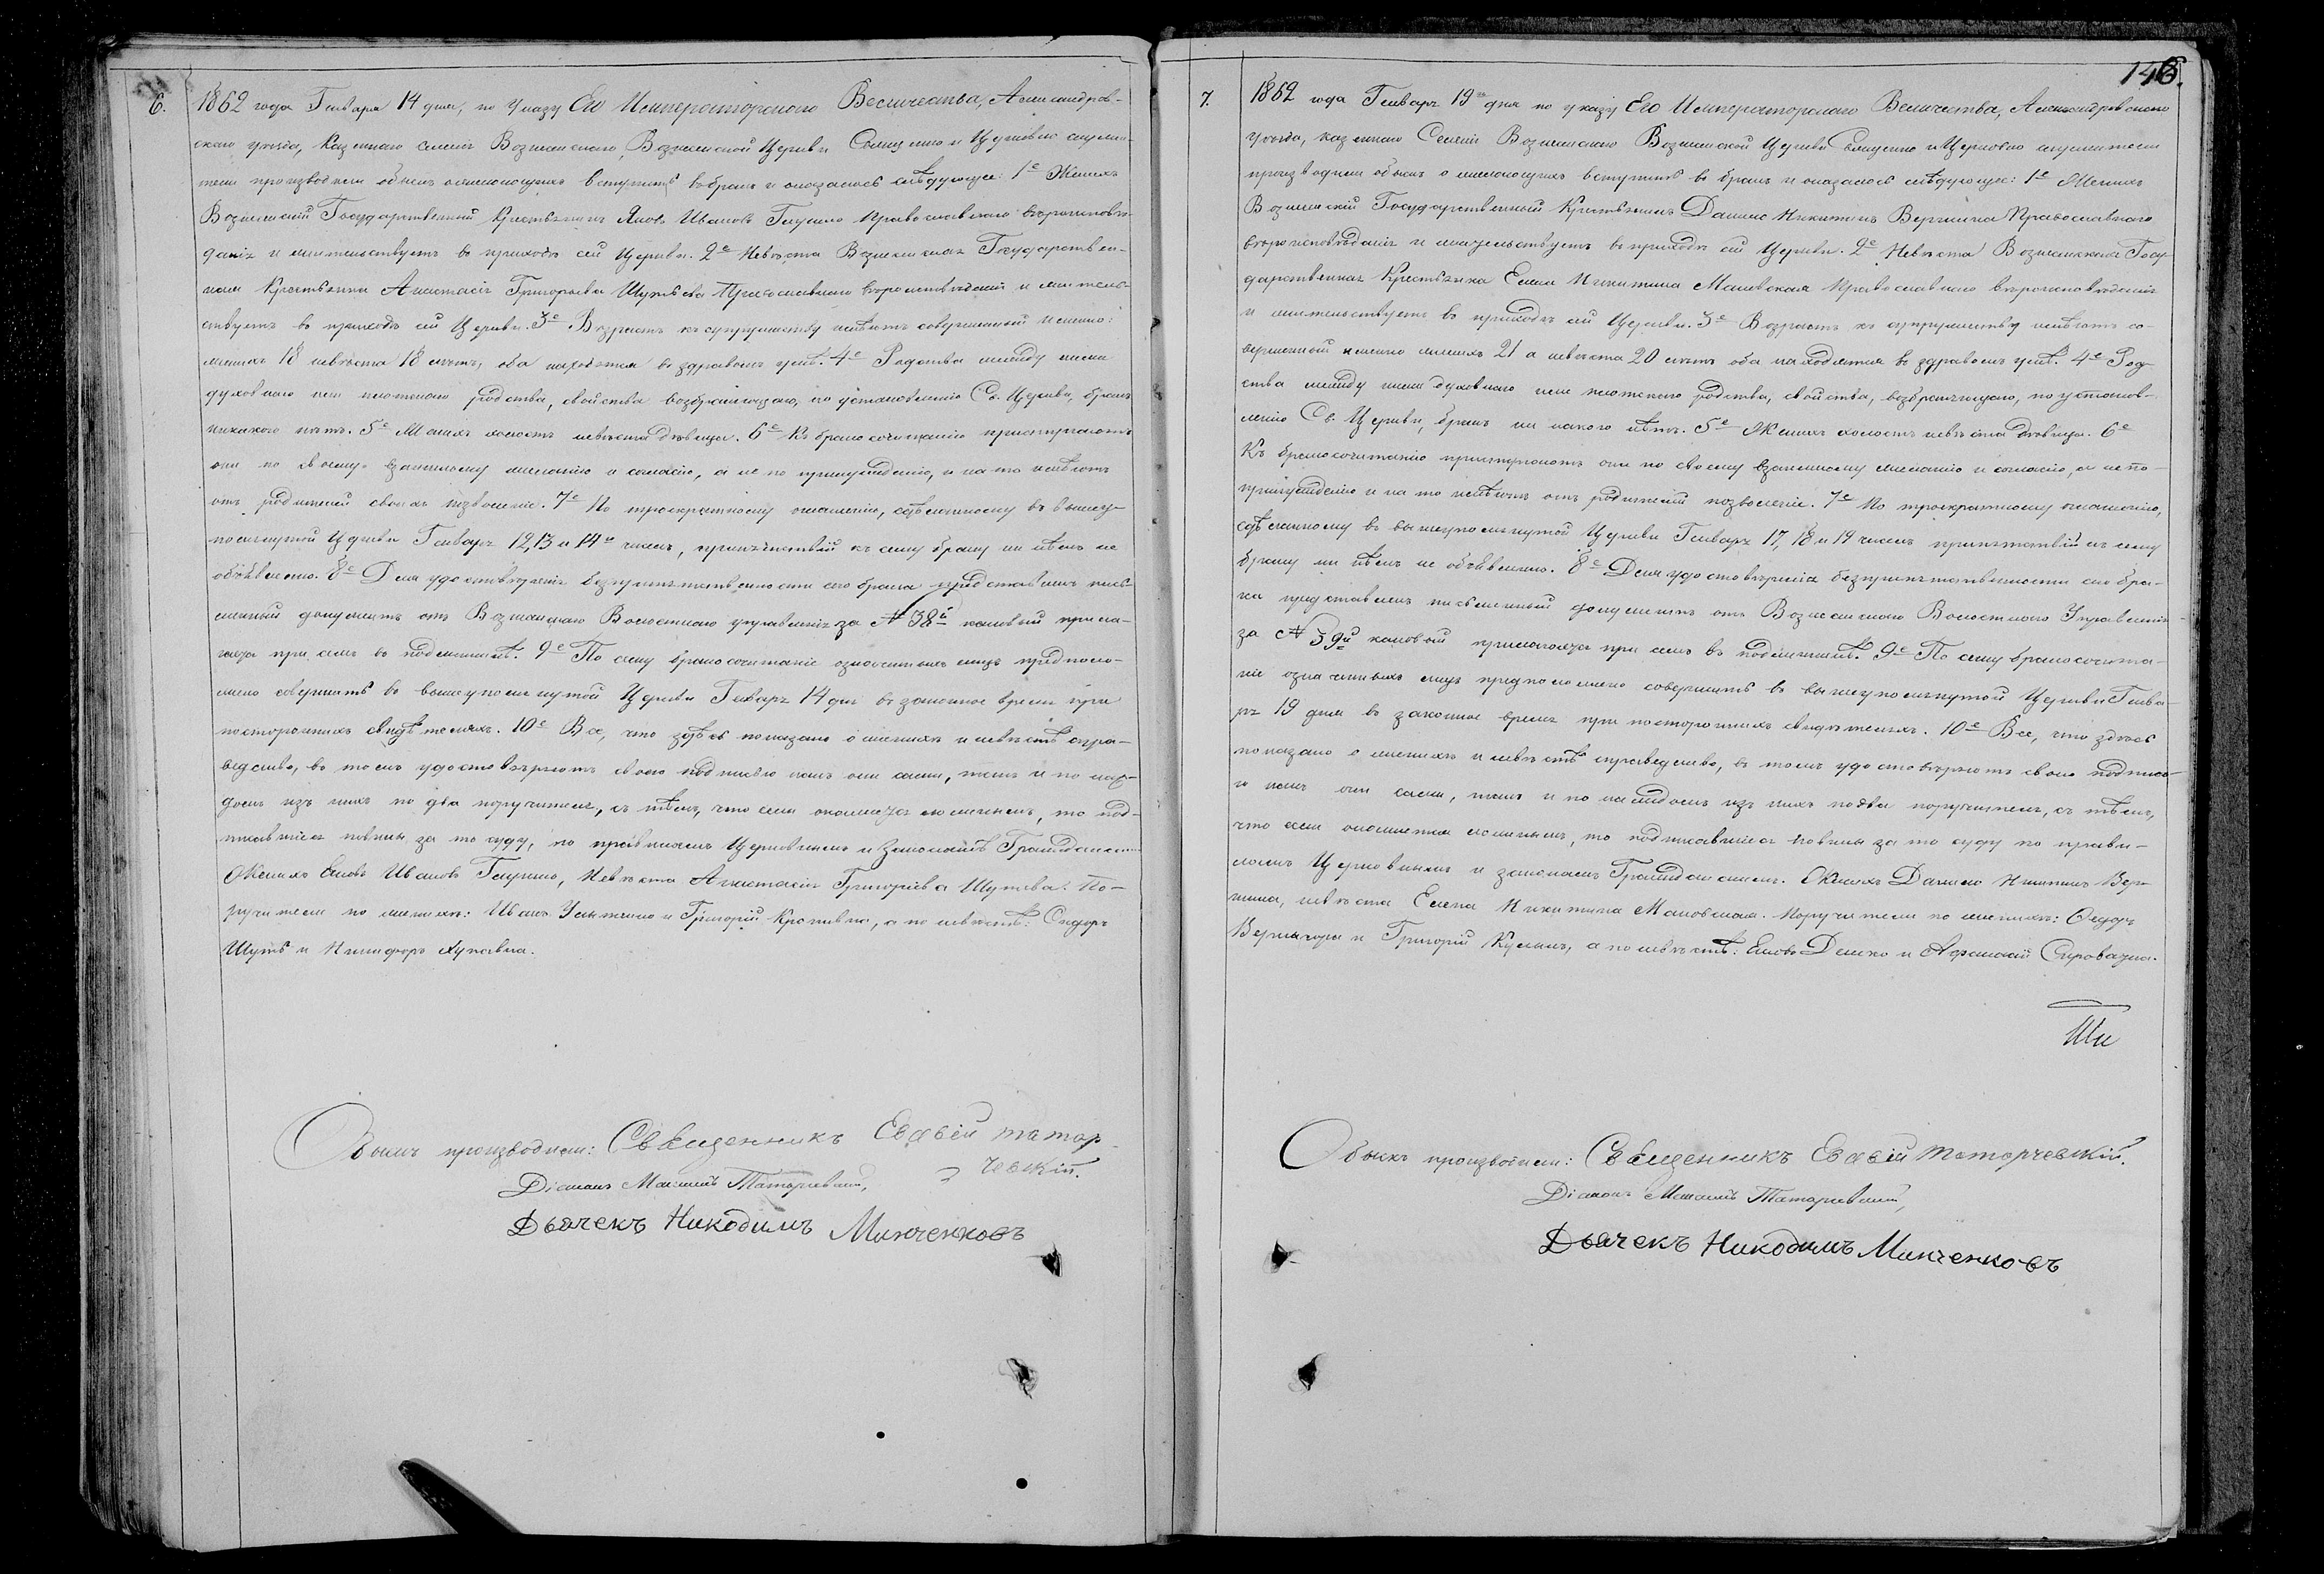 6.
1862 года Генваря 14 дня, по Указу Его Императорского Величества, Александров-
скаго уезда, Казеннаго селенія Вознесенскаго, Вознесенской Церкви Священно и Церковно служи-
тели производили обыскъ о желающихъ вступить въ бракъ и оказалось слѣдующее: 1е Женихъ
Вознесенскій Государственный Крестьянинъ Яковъ Ивановъ Православнаго вѣроисповѣ-
данія и жительствуетъ въ приходѣ сей Церкви. 2е Невѣста Вознесенская Государствен-
ная Крестьянка Анастасія Григорьева Шутьева Православнаго вѣроисповѣданія и житель-
ствуетъ въ приходѣ сей Церкви. 3е Возрастъ къ супружеству имѣютъ совершенный именно:
женихъ 18 невѣста 18 лѣтъ, оба находятся въ здравомъ умѣ. 4е Родства между ними
духовнаго или плотскаго родства, свойства возбраняющаго, по установленію Св. Церкви, бракъ
никакого нѣтъ. 5е Женихъ холостъ невѣста дѣвица. 6е Къ бракосочетанію приступаютъ
они по своему взаимному желанію и согласію, а не по принужденію, и на то имѣютъ
отъ родителей своихъ позволеніе. 7е По троекратному оглашенію, сдѣланному въ вышеу-
помянутой Церкви Генваря 12, 13 и 14го числъ, препятствій къ сему браку ни кѣмъ не
объявлено. 8е Для удостовѣренія безпрепятственности сего брака представленъ пись-
менный документъ отъ Вознесенскаго Волостнаго управленія за № 38й каковый прила-
гается при семъ въ подлинникѣ. 9е По сему бракосочетаніе означенныхъ лицъ предполо-
жено совершить въ вышеупомянутой Церкви Генваря 14 дня въ законное время при
постороннихъ свидѣтеляхъ. 10е Все, что здѣсь показано о женихѣ и невѣстѣ спра-
ведливо, въ томъ удостовѣряютъ своею подписью какъ они сами, такъ и по каж-
домъ изъ нихъ по два поручителя, съ тѣмъ, что если окажется ложнымъ, то под-
писавшіеся повинны за то суду, по правиламъ Церковнымъ и законамъ Гражданскимъ.
Женихъ Яковъ Ивановъ Невѣста Анастасія Григоріева Шутьева. По-
ручители по женихѣ: Иванъ и Григорій Кропивка, а по невѣстѣ: Сидоръ
Шуть и Никифоръ
Обыскъ производили: Священникъ Евсевій Татар-
чевскій.
Діаконъ Татарчевскій,
Дьячекъ Никодимъ Минченковъ
146.
7.
1862 года Генваря 19го дня по указу Его Императорскаго Величества, Александровскаго
уезда, казеннаго Селенія Вознесенскаго Вознесенской Церкви Священно и Церковно служители
производили обыскъ о желающихъ вступить въ бракъ и оказалось слѣдующее: 1е Женихъ
Вознесенскій Государственный Крестьянинъ Данило Никитинъ Православнаго
вѣроисповѣданія и жительствуетъ въ приходѣ сей Церкви. 2е Невѣста Вознесенская Госу-
дарственная Крестьянка Елена Никитина Православнаго вѣроисповѣданія
и жительствуетъ въ приходѣ сей Церкви. 3е Возрастъ къ супружеству имѣютъ со-
вершенный именно женихъ 21 а невѣста 20 лѣтъ оба находятся въ здравомъ умѣ. 4е Род-
ства между ними духовнаго или плотскаго родства, свойства, возбраняющаго, по установ-
ленію Св. Церкви, бракъ ни какого нѣтъ. 5е Женихъ холостъ невѣста дѣвица. 6е
Къ бракосочетанію приступаютъ они по своему взаимному желанію и согласію, а не по-
принужденію и на то имѣютъ отъ родителей позволеніе. 7е По троекратному оглашенію,
сдѣланному въ вышеупомянутой Церкви Генваря 17, 18 и 19 числъ препятствій къ сему
браку ни кѣмъ не объявлено. 8е Для удостовѣренія безпрепятственности сего бра-
ка представленъ письменный документъ отъ Вознесенскаго Волостного Управленія
за № 39й каковый прилагается при семъ въ подлинникѣ. 9е По сему бракосочета-
ніе означенныхъ лицъ предположено совершить въ вышеупомянутой Церкви Генва-
ря 19 дня въ законное время при постороннихъ свидѣтеляхъ. 10е Все, что здѣсь
показано о женихѣ и невѣстѣ справедливо, въ томъ удостовѣряютъ своею подпись-
ю какъ они сами, такъ и по каждомъ изъ нихъ по два поручителя, съ тѣмъ,
что если окажется ложнымъ, то подписавшіеся повинны за то суду по прави-
ламъ Церковнымъ и законамъ Гражданскимъ. Женихъ Данило Никитинъ
невѣста Елена Никитина Поручители по женихѣ: Федоръ
и Григорій а по невѣстѣ: Яковъ и Афанасій
Обыскъ производили: Священникъ Евсевій Татарчевскій.
Діаконъ Татарчевскій,
Дьячекъ Никодимъ Минченковъ